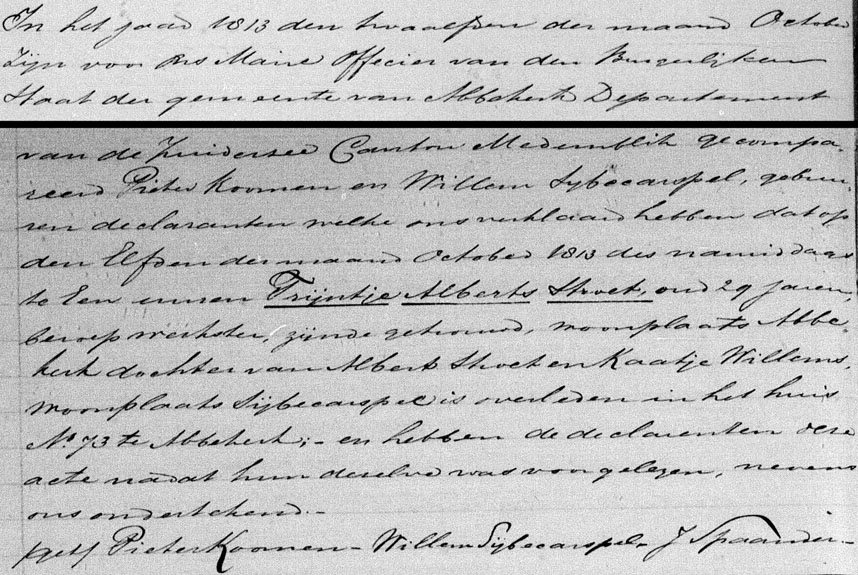 In het jaar 1813 den twaalfden der maand October
Zijn voor ons Maire Officier van den Burgerlijken
Staat der gemeente van Abbekerk Departement
van de Zuiderzee Canton Medemblik gecompa-
reerd Pieter Koomen en Willem Sijbecarspel, gebuu-
ren declaranten welke ons verklaard hebben dat op
den Elfden der maand October 1813 des namiddags
te Een uuren Trijntje Alberts Stroet, oud 29 jaren,
beroep werkster, zijnde getrouwd, woonplaats Abbe-
kerk dochter van Albert Stroet en Kaatje Willems,
woonplaats Sijbecarspel is overleden in het huis
No. 73 te Abbekerk; - en hebben de declaranten deze
acte nadat hun deselve was voorgelezen, nevens
ons ondertekend. -
(get) Pieter Koomen - Willem Sijbecarspel - J Spaander -